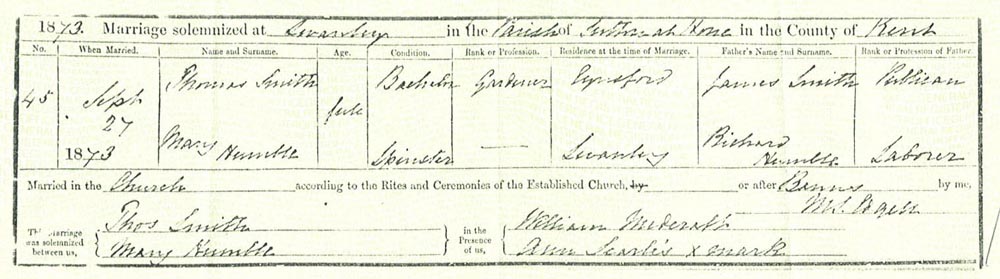 1873. Marriage solemnized at Swanley in the Parish of Sutton at Hone in the County of Kent
No. When Married. Name and Surname. Age. Condition. Rank or Profession. Residence at the time of Marriage. Father's Name and Surname. Rank or Profession of Father.
45 Sept 27 1873 Thomas Smith full Bachelor Gardener Eynsford James Smith Publican
Mary Humble Spinster — Swanley Richard Humble Laborer
Married in the Church according to the Rites and Ceremonies of the Established Church, by or after Banns by me,
This Marriage was solemnized between us, Thos Smith
Mary Humble
in the Presence of us, William
Ann Searles x mark